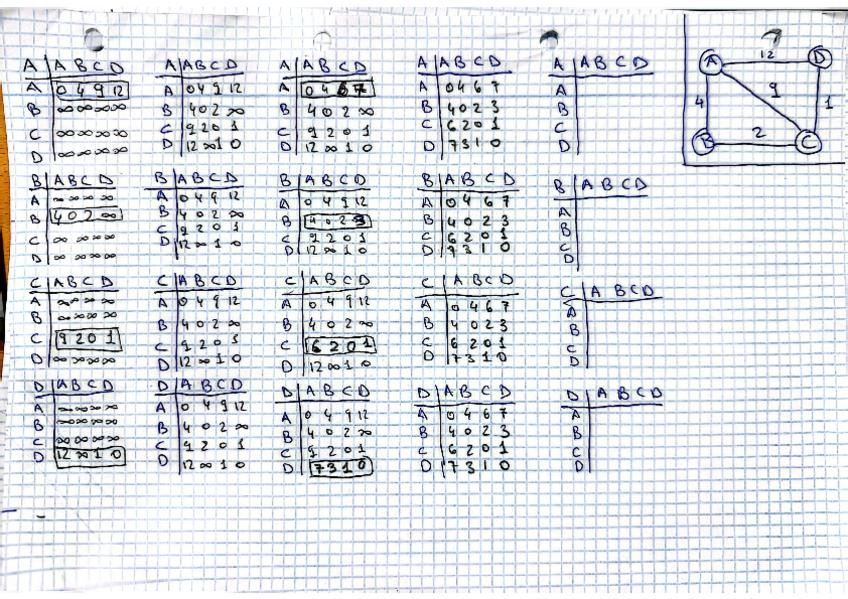 A | A B C D   A | A B C D   A | A B C D   A | A B C D   A | A B C D
A | 0 4 9 12   A | 0 4 9 12   A | 0 4 6 7   A | 0 4 6 7   A |
B | ∞ ∞ ∞ ∞   B | 4 0 2 ∞   B | 4 0 2 ∞   B | 4 0 2 3   B |
C | ∞ ∞ ∞ ∞   C | 9 2 0 1   C | 9 2 0 1   C | 6 2 0 1   C |
D | ∞ ∞ ∞ ∞   D | 12 ∞ 1 0   D | 12 ∞ 1 0   D | 7 3 1 0   D |
A 12 D
4 9 1
B 2 C
B | A B C D   B | A B C D   B | A B C D   B | A B C D   B | A B C D
A | ∞ ∞ ∞ ∞   A | 0 4 9 12   A | 0 4 9 12   A | 0 4 6 7   A |
B | 4 0 2 ∞   B | 4 0 2 ∞   B | 4 0 2 3   B | 4 0 2 3   B |
C | ∞ ∞ ∞ ∞   C | 9 2 0 1   C | 9 2 0 1   C | 6 2 0 1   C |
D | ∞ ∞ ∞ ∞   D | 12 ∞ 1 0   D | 12 ∞ 1 0   D | 7 3 1 0   D |
C | A B C D   C | A B C D   C | A B C D   C | A B C D   C | A B C D
A | ∞ ∞ ∞ ∞   A | 0 4 9 12   A | 0 4 9 12   A | 0 4 6 7   A |
B | ∞ ∞ ∞ ∞   B | 4 0 2 ∞   B | 4 0 2 ∞   B | 4 0 2 3   B |
C | 9 2 0 1   C | 9 2 0 1   C | 6 2 0 1   C | 6 2 0 1   C |
D | ∞ ∞ ∞ ∞   D | 12 ∞ 1 0   D | 12 ∞ 1 0   D | 7 3 1 0   D |
D | A B C D   D | A B C D   D | A B C D   D | A B C D   D | A B C D
A | ∞ ∞ ∞ ∞   A | 0 4 9 12   A | 0 4 9 12   A | 0 4 6 7   A |
B | ∞ ∞ ∞ ∞   B | 4 0 2 ∞   B | 4 0 2 ∞   B | 4 0 2 3   B |
C | ∞ ∞ ∞ ∞   C | 9 2 0 1   C | 9 2 0 1   C | 6 2 0 1   C |
D | 12 ∞ 1 0   D | 12 ∞ 1 0   D | 7 3 1 0   D | 7 3 1 0   D |